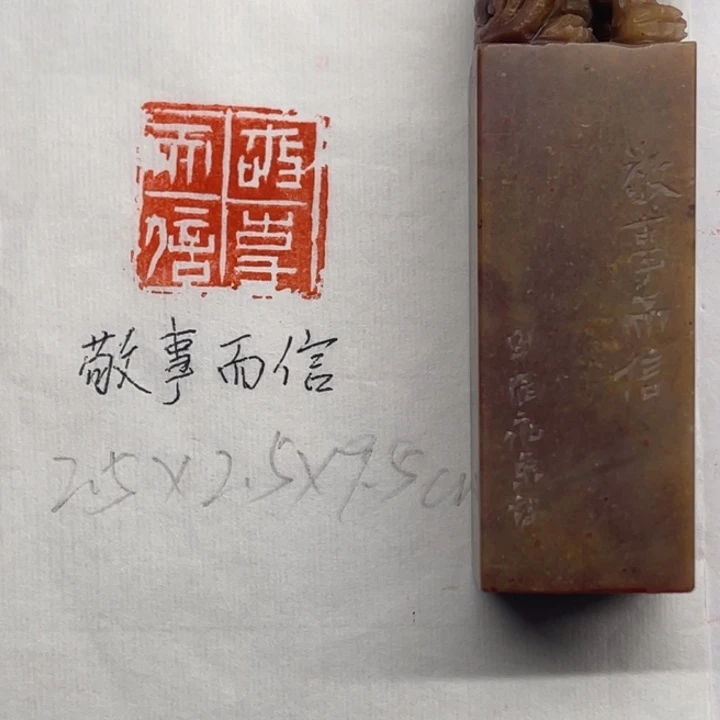 敬事而信
敬事而信
2.5×2.5×9.5cm
敬事而信